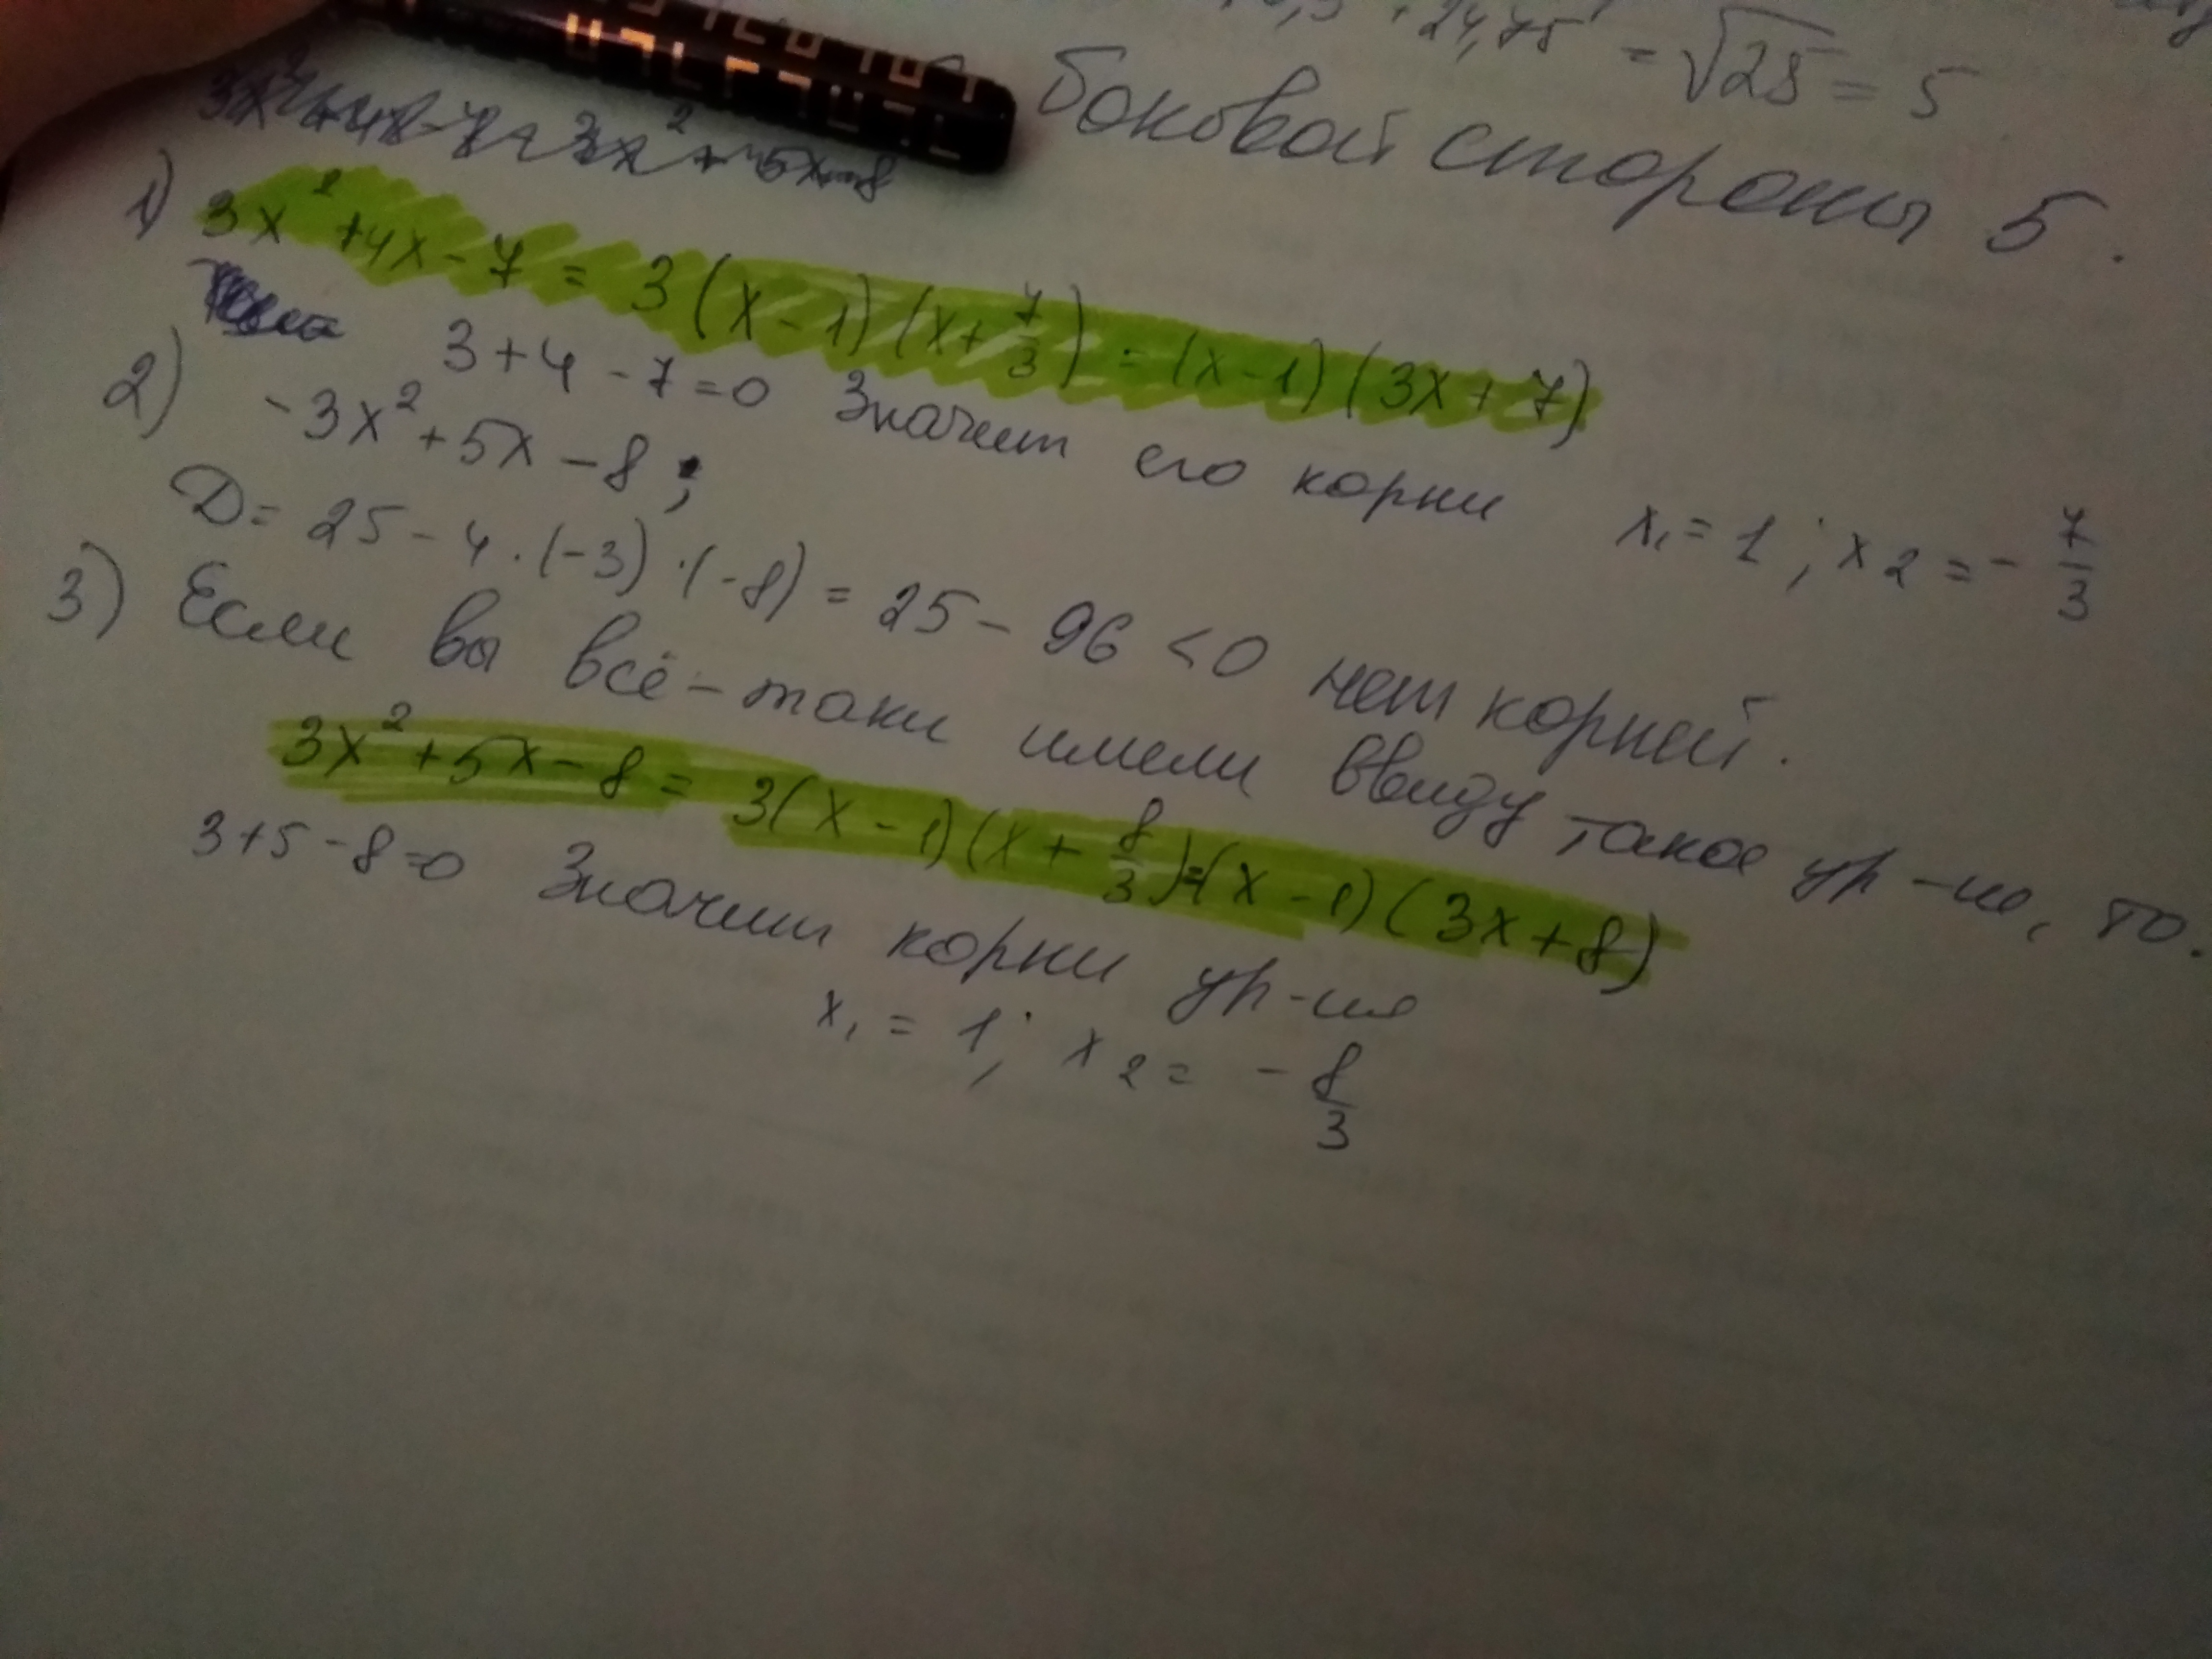 24,75 = √25 = 5
боковой стороны 5.
3x² + 4x - 7 = 3x² + 5x - 8
1) 3x² + 4x - 7 = 3(x - 1)(x + 7/3) = (x - 1)(3x + 7)
3 + 4 - 7 = 0 Значит его корни x₁ = 1; x₂ = - 7/3
2) -3x² + 5x - 8;
D = 25 - 4 · (-3) · (-8) = 25 - 96 < 0 нет корней.
3) Если вы всё-таки имели ввиду такое ур-ие, то.
3x² + 5x - 8 = 3(x - 1)(x + 8/3) = (x - 1)(3x + 8)
3 + 5 - 8 = 0 Значит корни ур-ия
x₁ = 1; x₂ = - 8/3